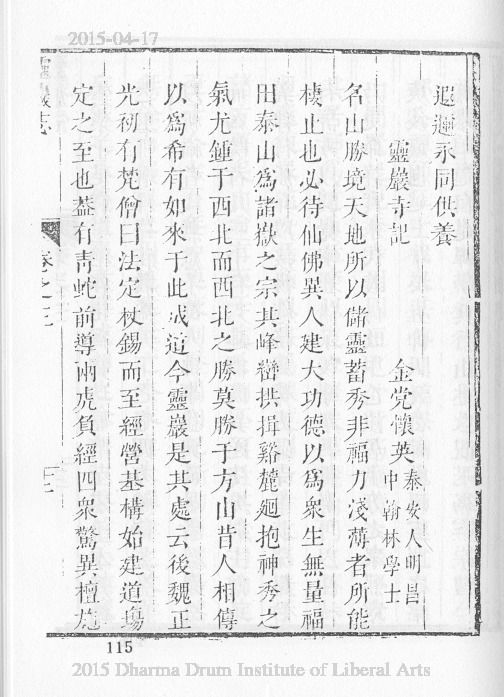 2015-04-17
遐邇永同供養
靈巖寺記
金党懷英泰安人明昌中翰林學士
名山勝境天地所以儲靈蓄秀非福力淺薄者所能
棲止也必待仙佛異人建大功德以爲衆生無量福
田泰山爲諸嶽之宗其峰巒拱揖谿麓廻抱神秀之
氣尤鍾于西北而西北之勝莫勝于方山昔人相傳
以爲希有如來于此成道今靈巖是其處云後魏正
光初有梵僧曰法定杖錫而至經營基構始建道塲
定之至也葢有青蛇前導兩虎負經四衆驚異檀施
靈巖志
卷之三
115
2015 Dharma Drum Institute of Liberal Arts